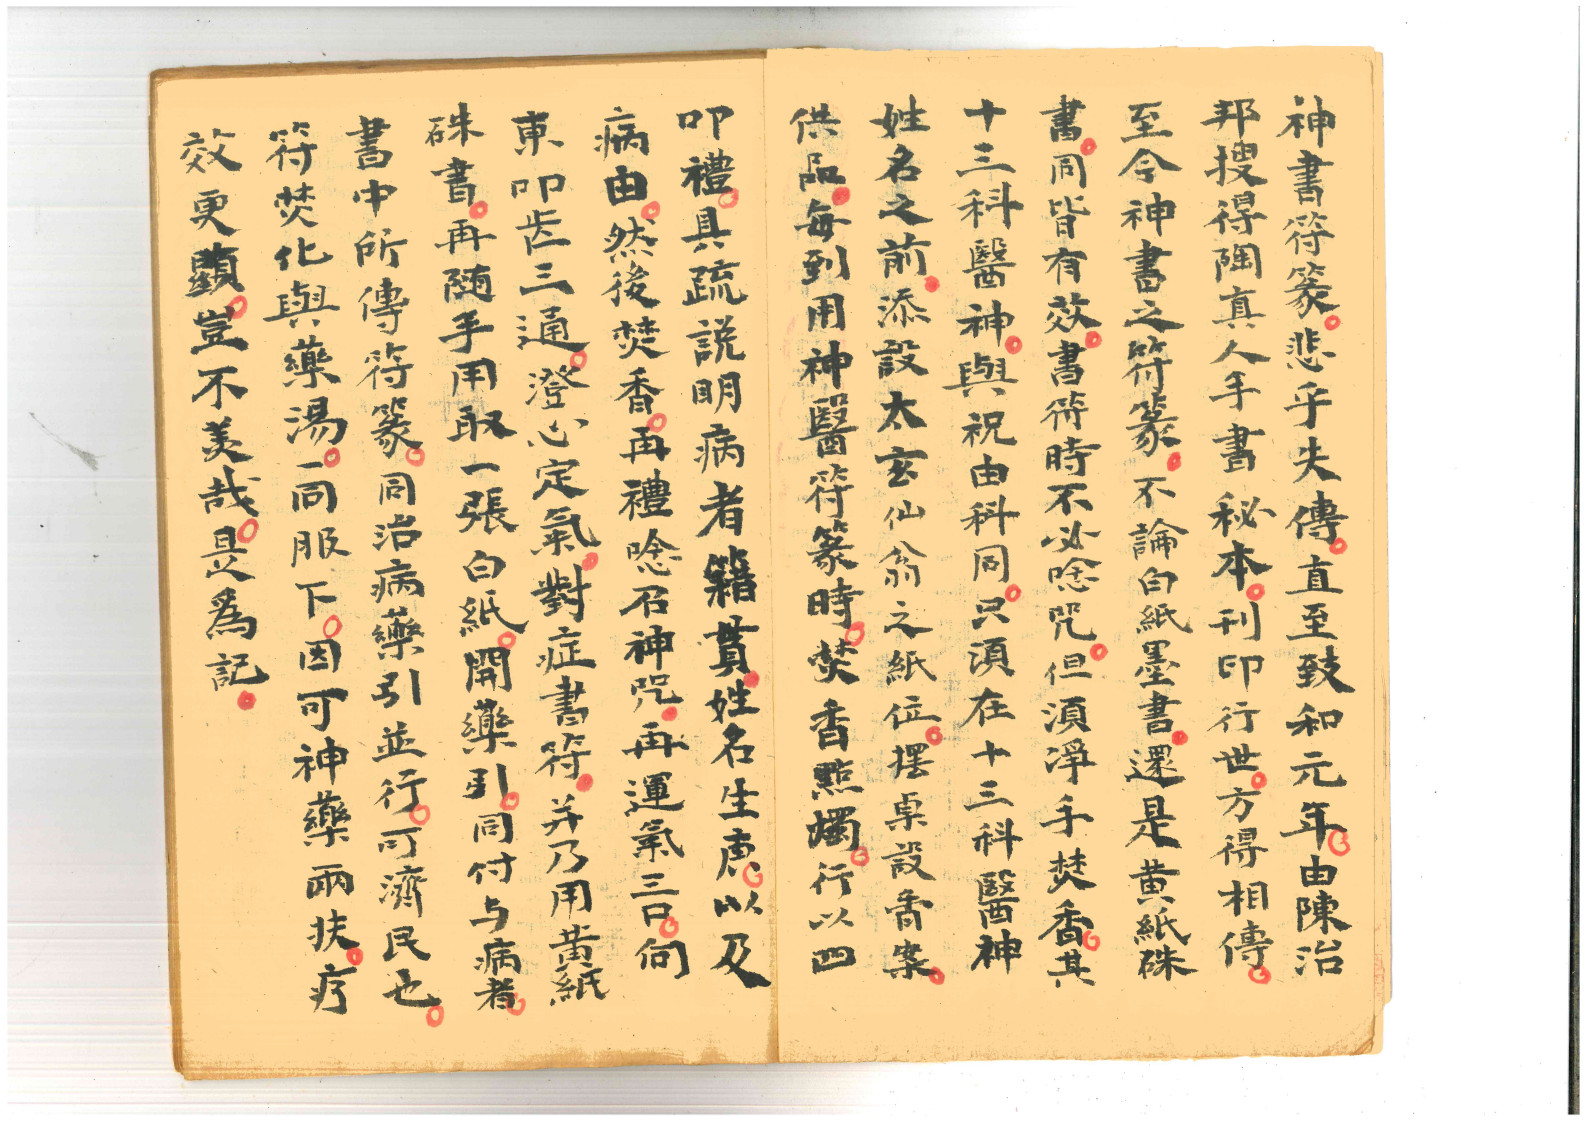 神書符篆。悲乎失傳。直至致和元年。由陳治
邦搜得陶真人手書秘本。刊印行世。方得相傳。
至今神書之符篆。不論白紙墨書。還是黄紙硃
書。同皆有效。書符時不必唸咒。但湏淨手焚香。其
十三科醫神。與祝由科同。只湏在十三科醫神
姓名之前。添設太玄仙翁之紙位。擺桌設香案。
供品。每到用神醫符篆時。焚香點燭。行以四
叩禮。具疏説明病者籍貫。姓名生庚。以及
病由。然後焚香。再禮唸召神咒。再運氣三口。伺
東叩齿三通。澄心定氣。對症書符。并乃用黄紙
硃書。再随手用取一張白紙。開藥引。同付与病者。
書中所傳符篆。同治病藥引並行。可濟民也。
符焚化與藥湯。一同服下。因可神藥兩扶。疗
效更顯。豈不美哉。是為記。